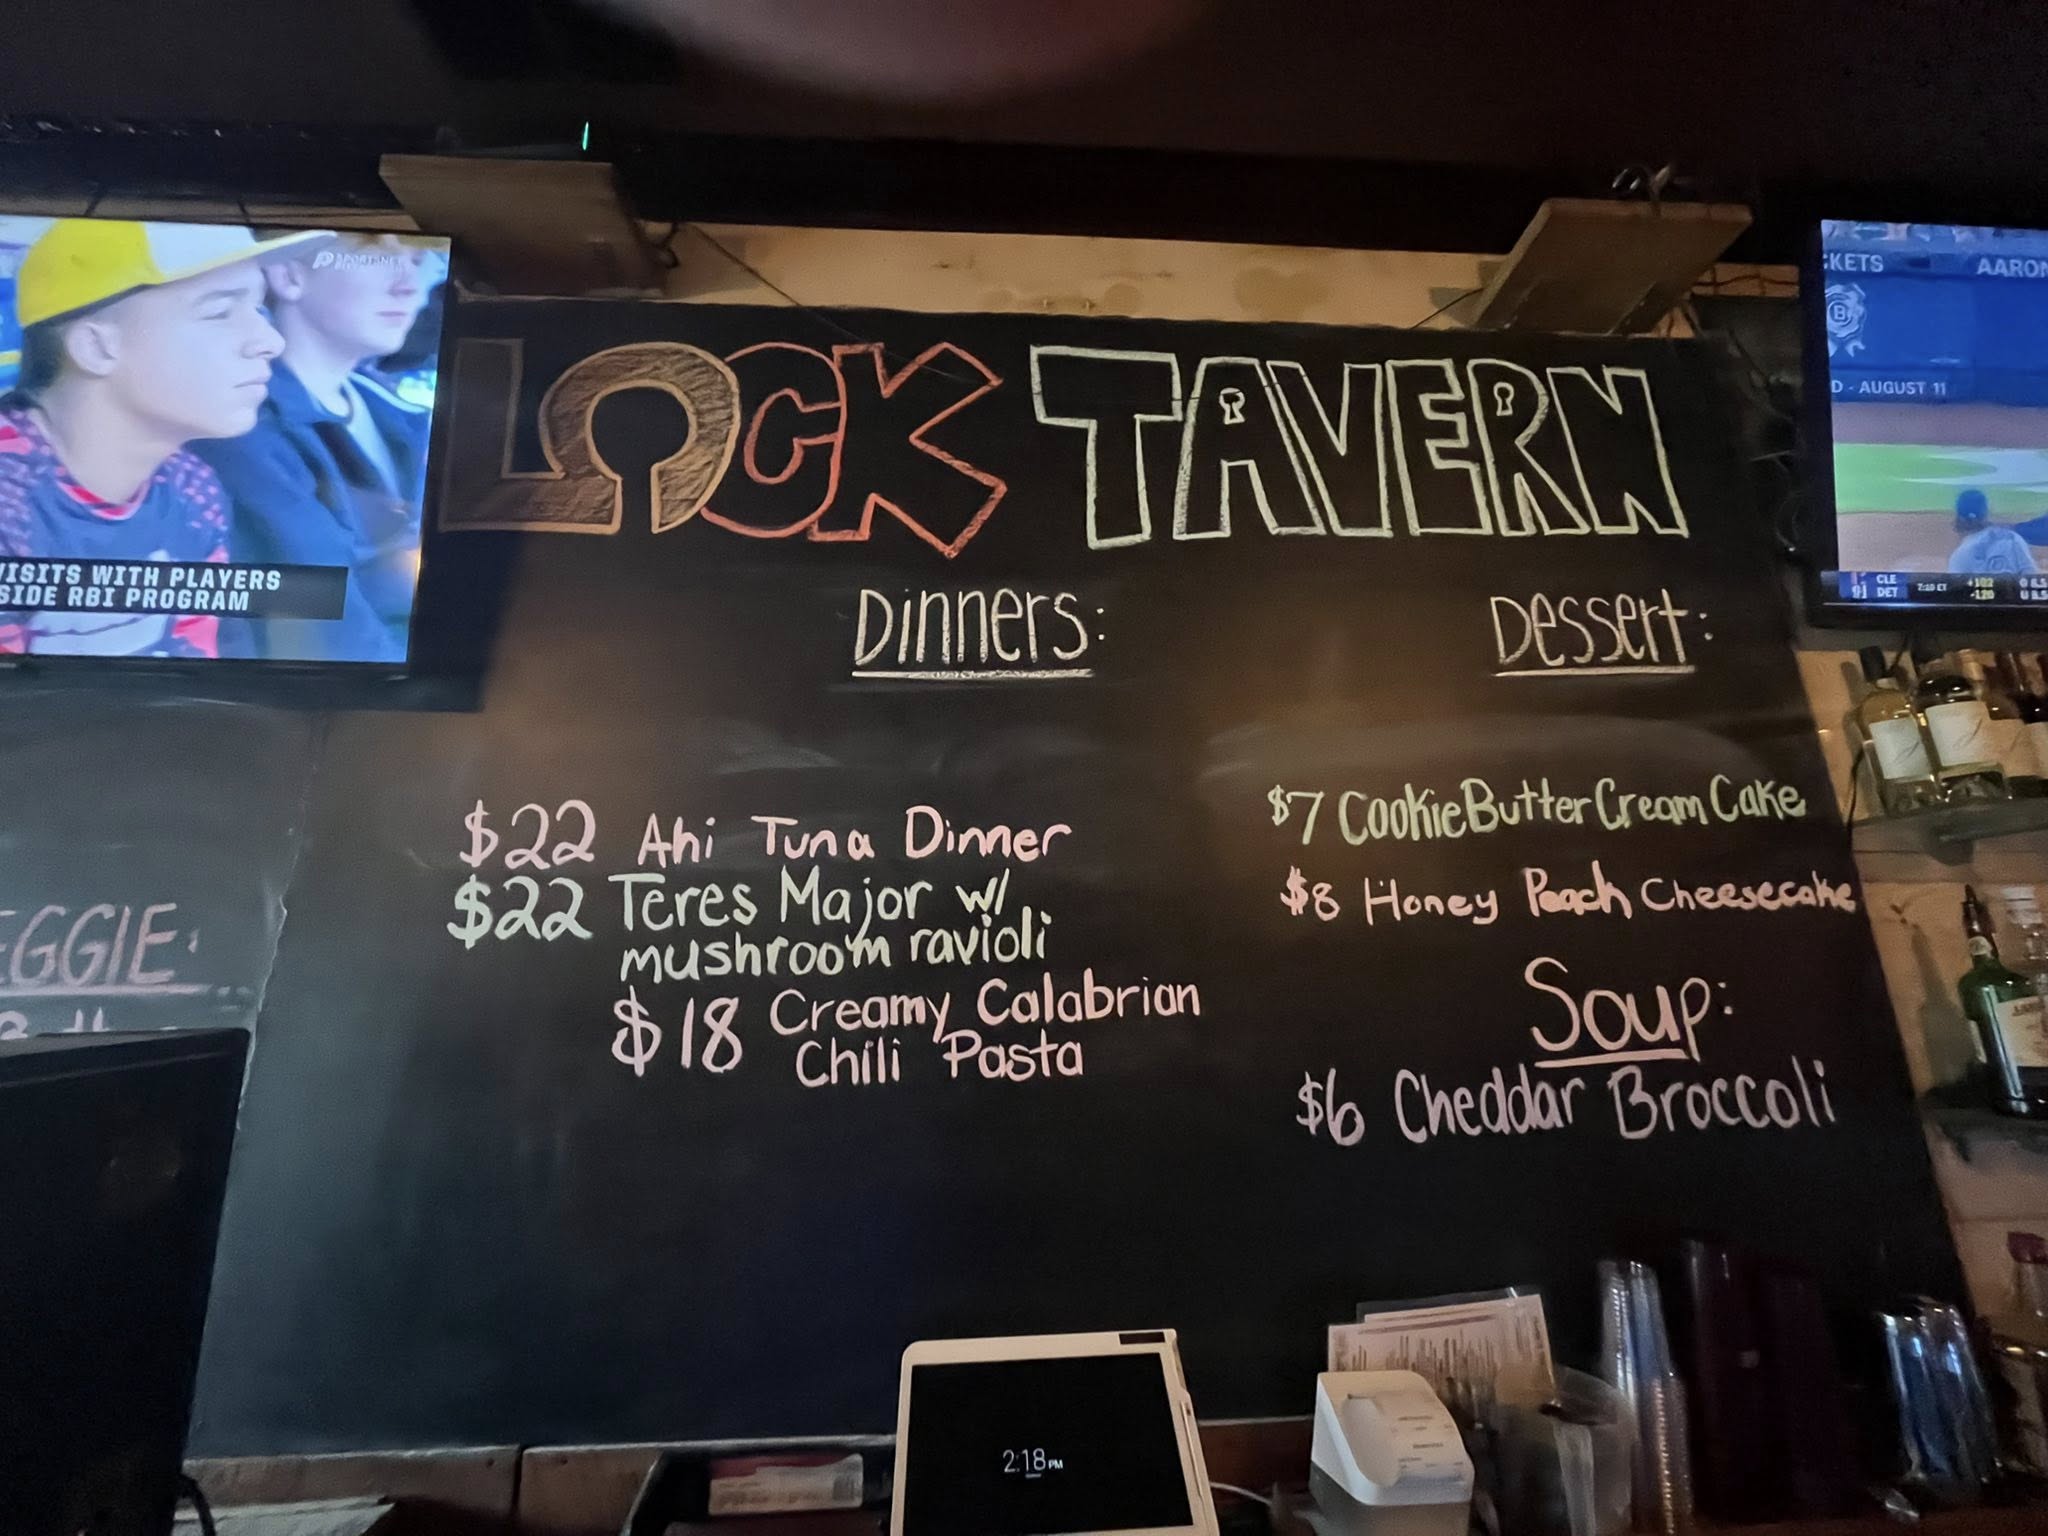 SPORTSNET
VISITS WITH PLAYERS
SIDE RBI PROGRAM
LOCK TAVERN
Dinners:
$22 Ahi Tuna Dinner
$22 Teres Major w/
mushroom ravioli
$18 Creamy Calabrian
Chili Pasta
Dessert:
$7 Cookie Butter Cream Cake
$8 Honey Peach Cheesecake
Soup:
$6 Cheddar Broccoli
EGGIE:
CKETS AARON
B
D - AUGUST 11
CLE 7:10 ET +102 O 8.5
DET -120 U 8.5
2:18 PM